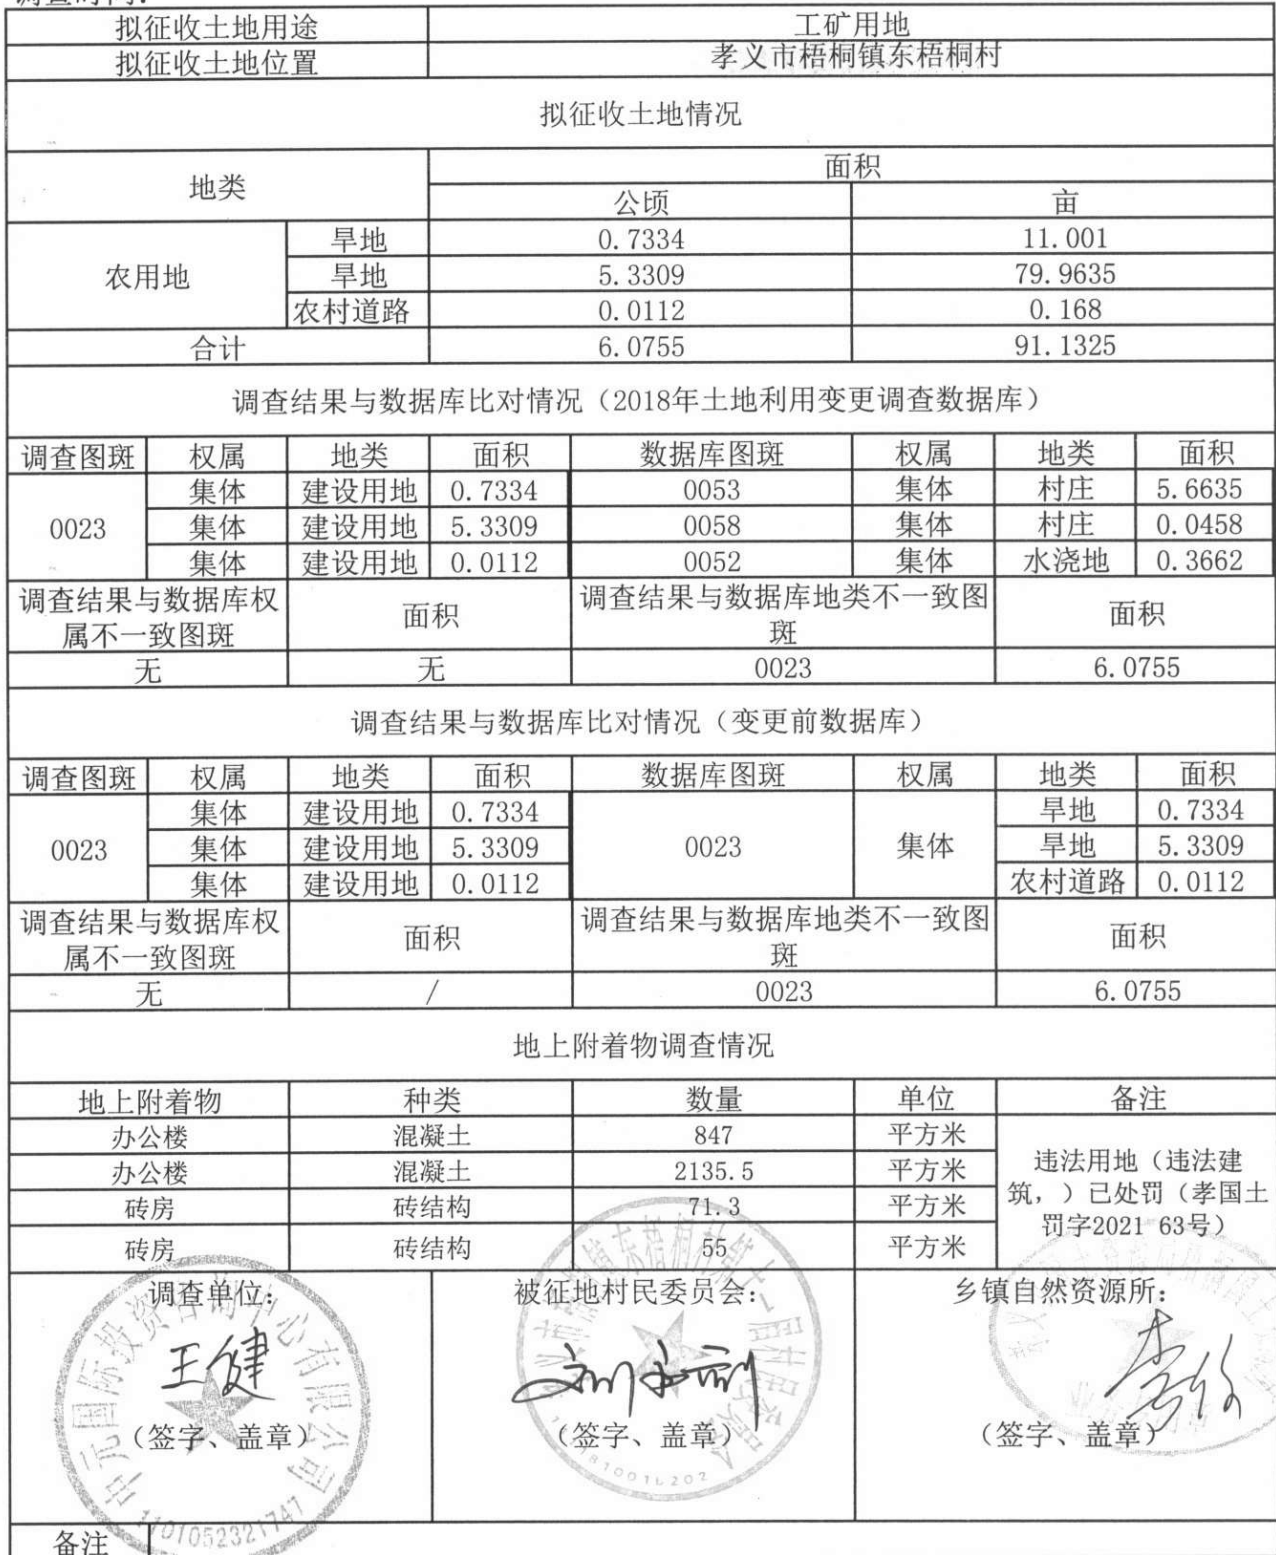 调查时间:
拟征收土地用途 工矿用地
拟征收土地位置 孝义市梧桐镇东梧桐村
拟征收土地情况
地类 面积
公顷 亩
农用地 旱地 0.7334 11.001
旱地 5.3309 79.9635
农村道路 0.0112 0.168
合计 6.0755 91.1325
调查结果与数据库比对情况（2018年土地利用变更调查数据库）
调查图斑 权属 地类 面积 数据库图斑 权属 地类 面积
0023 集体 建设用地 0.7334 0053 集体 村庄 5.6635
集体 建设用地 5.3309 0058 集体 村庄 0.0458
集体 建设用地 0.0112 0052 集体 水浇地 0.3662
调查结果与数据库权属不一致图斑 面积 调查结果与数据库地类不一致图斑 面积
无 无 0023 6.0755
调查结果与数据库比对情况（变更前数据库）
调查图斑 权属 地类 面积 数据库图斑 权属 地类 面积
0023 集体 建设用地 0.7334 0023 集体 旱地 0.7334
集体 建设用地 5.3309 旱地 5.3309
集体 建设用地 0.0112 农村道路 0.0112
调查结果与数据库权属不一致图斑 面积 调查结果与数据库地类不一致图斑 面积
无 / 0023 6.0755
地上附着物调查情况
地上附着物 种类 数量 单位 备注
办公楼 混凝土 847 平方米
办公楼 混凝土 2135.5 平方米
砖房 砖结构 71.3 平方米
砖房 砖结构 55 平方米
违法用地（违法建
筑，）已处罚（孝国土
罚字2021 63号）
调查单位： 被征地村民委员会： 乡镇自然资源所：
王健
（签字、盖章） （签字、盖章） （签字、盖章）
中元国际投资咨询中心有限公司
1101052321747
备注